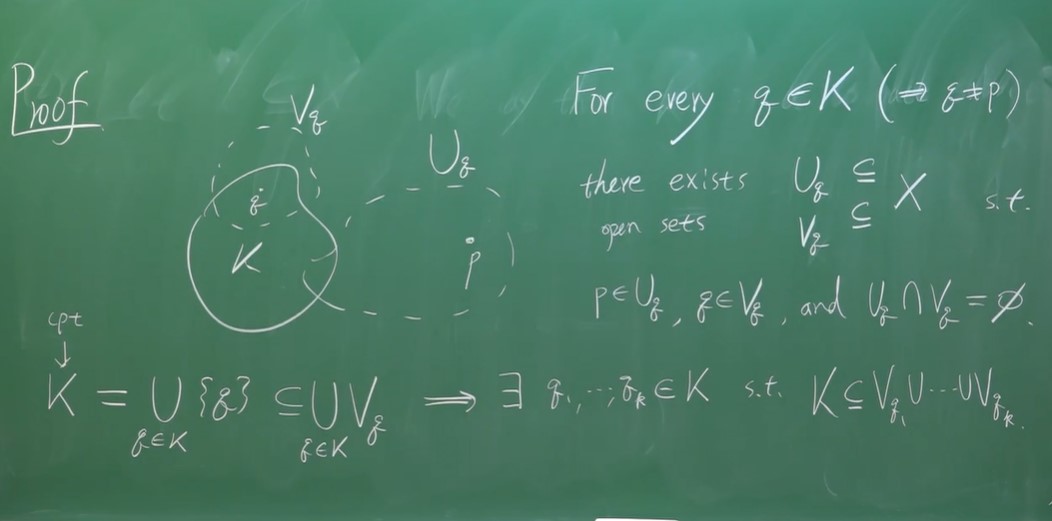 Proof
V_q
U_q
q
K
p
For every q ∈ K (⇒ q ≠ p)
there exists U_q ⊆ X s.t.
open sets V_q ⊆
p ∈ U_q, q ∈ V_q, and U_q ∩ V_q = ∅.
cpt
↓
K = ∪_{q∈K} {q} ⊆ ∪_{q∈K} V_q ⟹ ∃ q_1, ..., q_k ∈ K s.t. K ⊆ V_{q_1} ∪ ⋯ ∪ V_{q_k}.